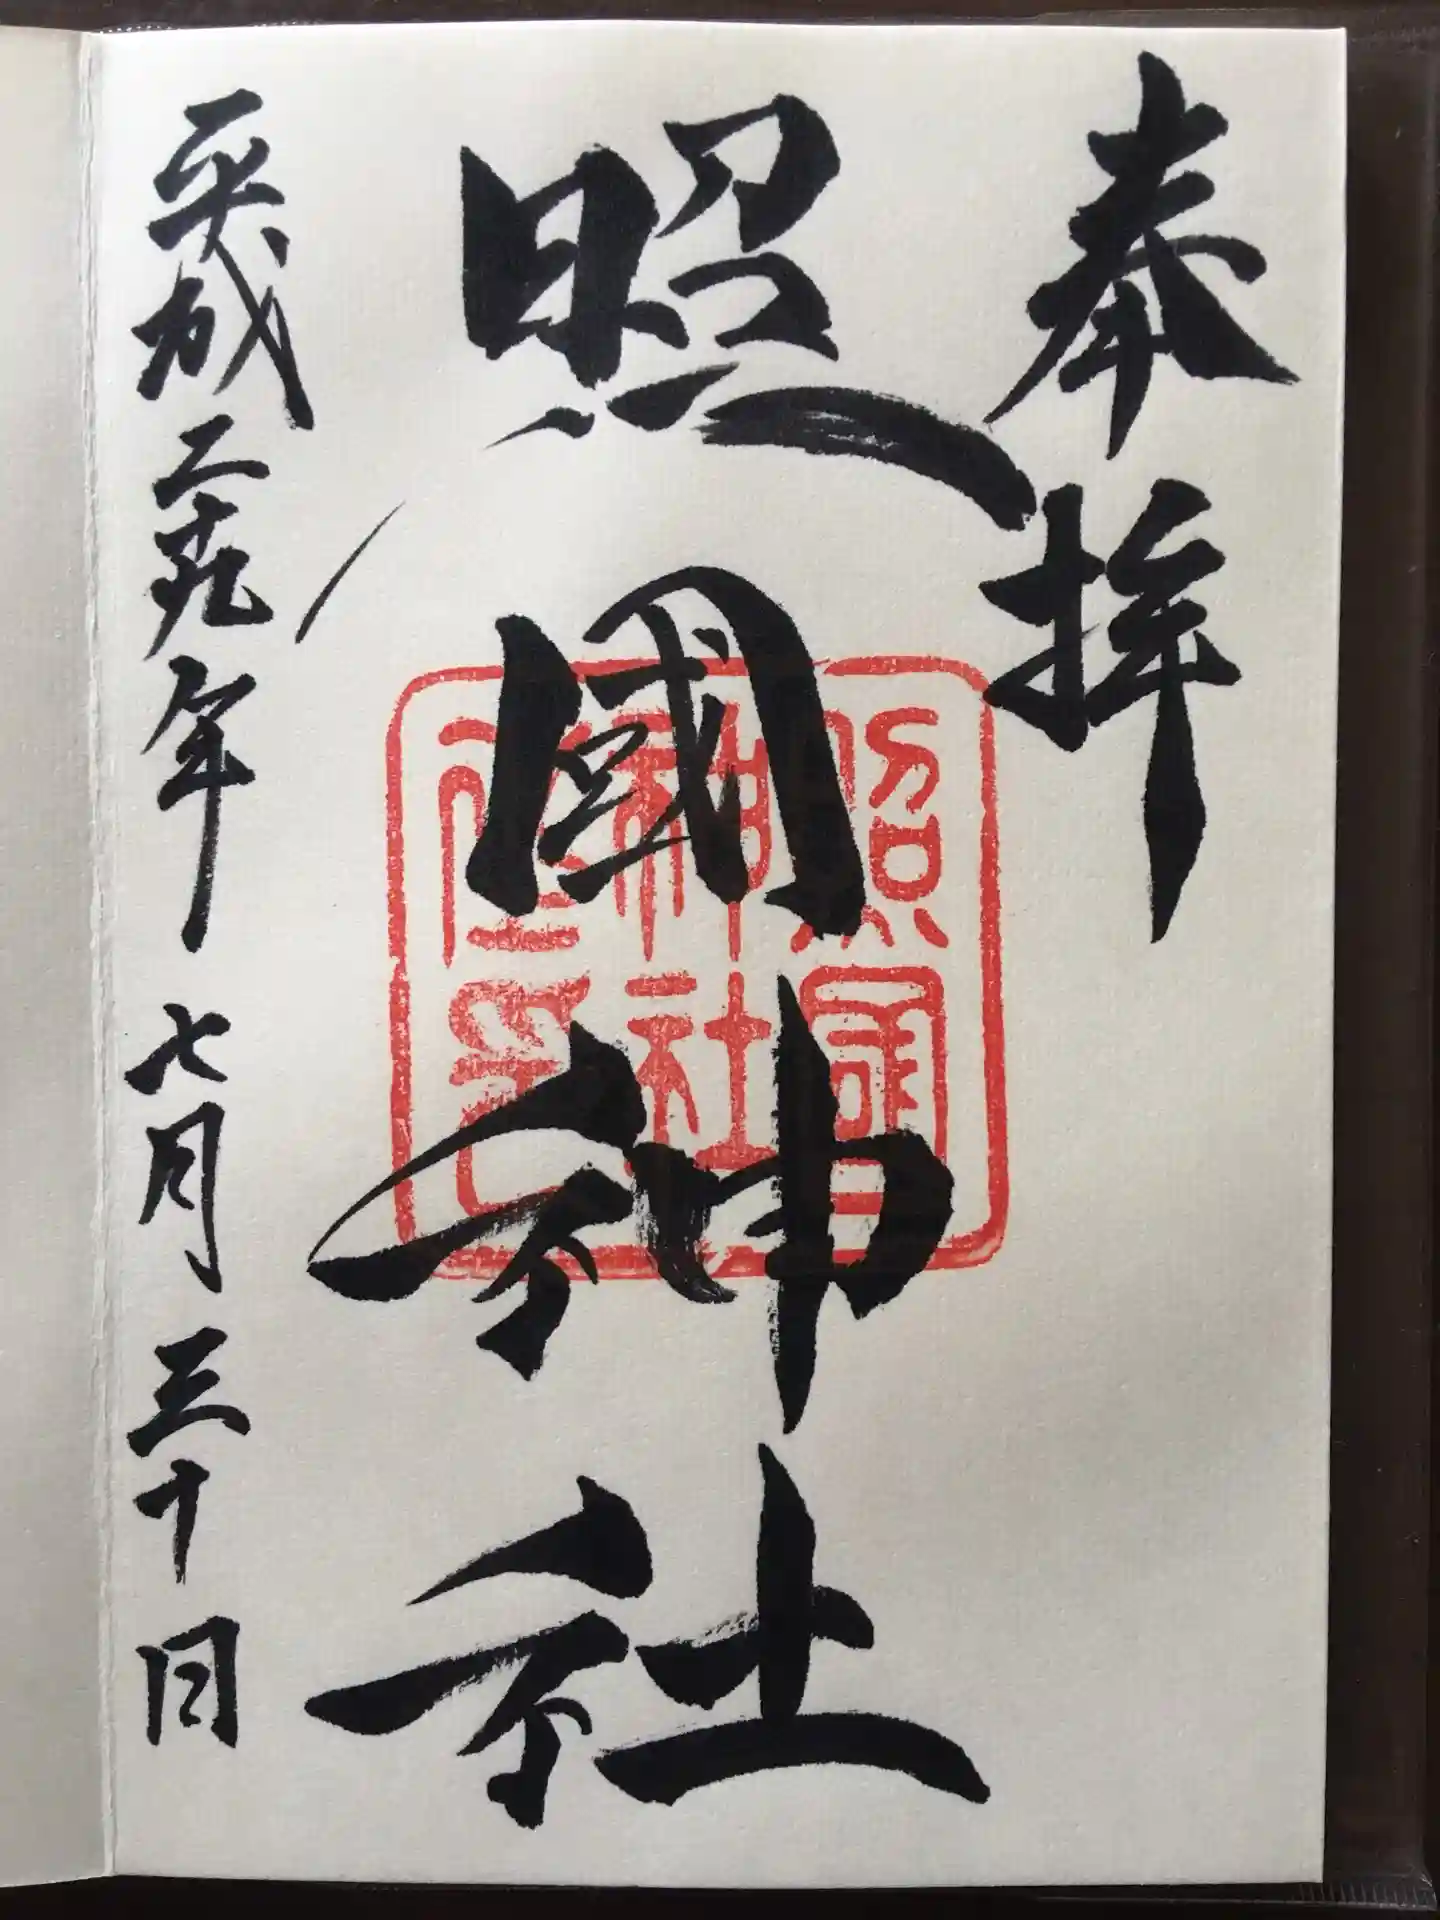 奉拝
照國神社
平成二十九年七月三十日
照國
神社
之印